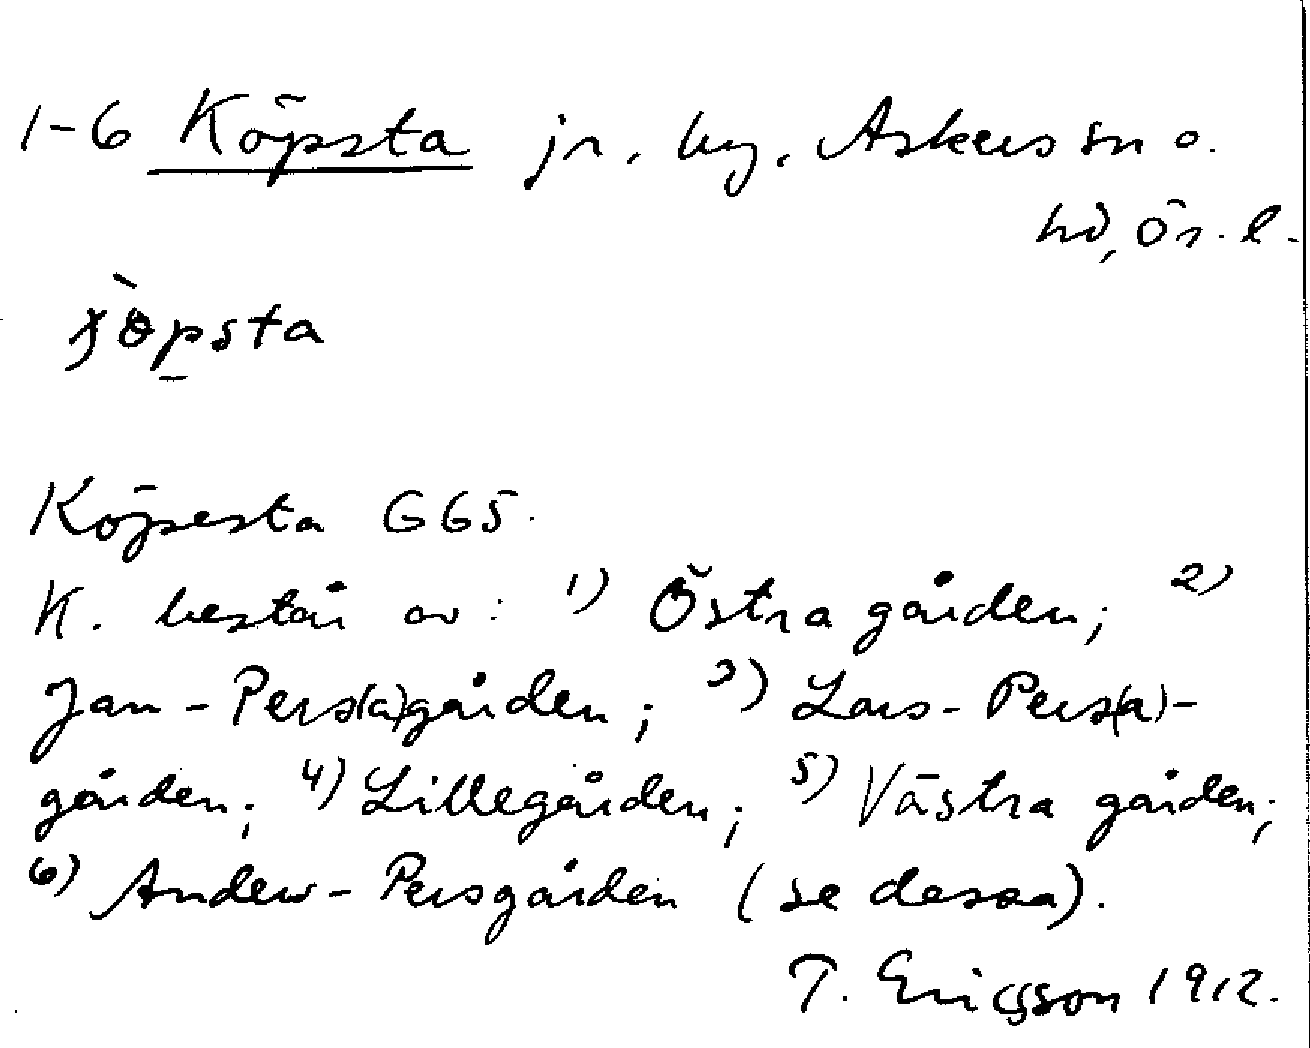 1-6 Köpsta jr. by, Askers sn o.
hd, Ör. l.
Köpesta G65.
K. består av: 1) Östra gården; 2)
Jan-Pers(a)gården; 3) Lars-Pers(a)-
gården; 4) Lillegården; 5) Västra gården;
6) Anders-Persgården (se dessa).
T. Ericsson 1912.